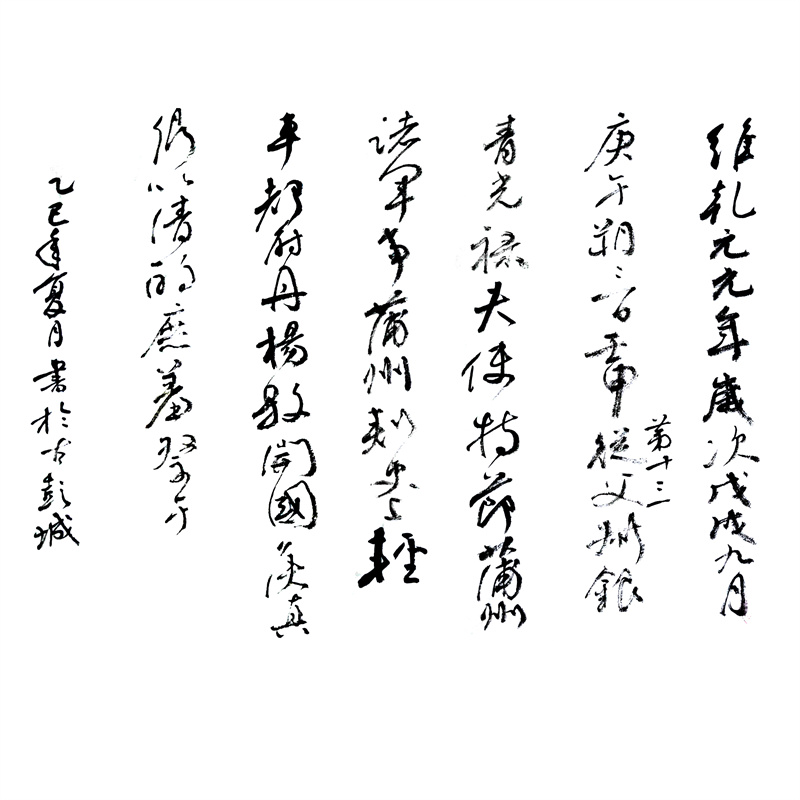 維乾元元年歲次戊戌九月
庚午朔三日壬申從父州銀
第十三
青光祿夫使持節蒲州
諸軍事蒲州刺史上輕
車都尉丹楊縣開國侯真
卿以清酌庶羞祭于
乙巳年夏月書於古彭城